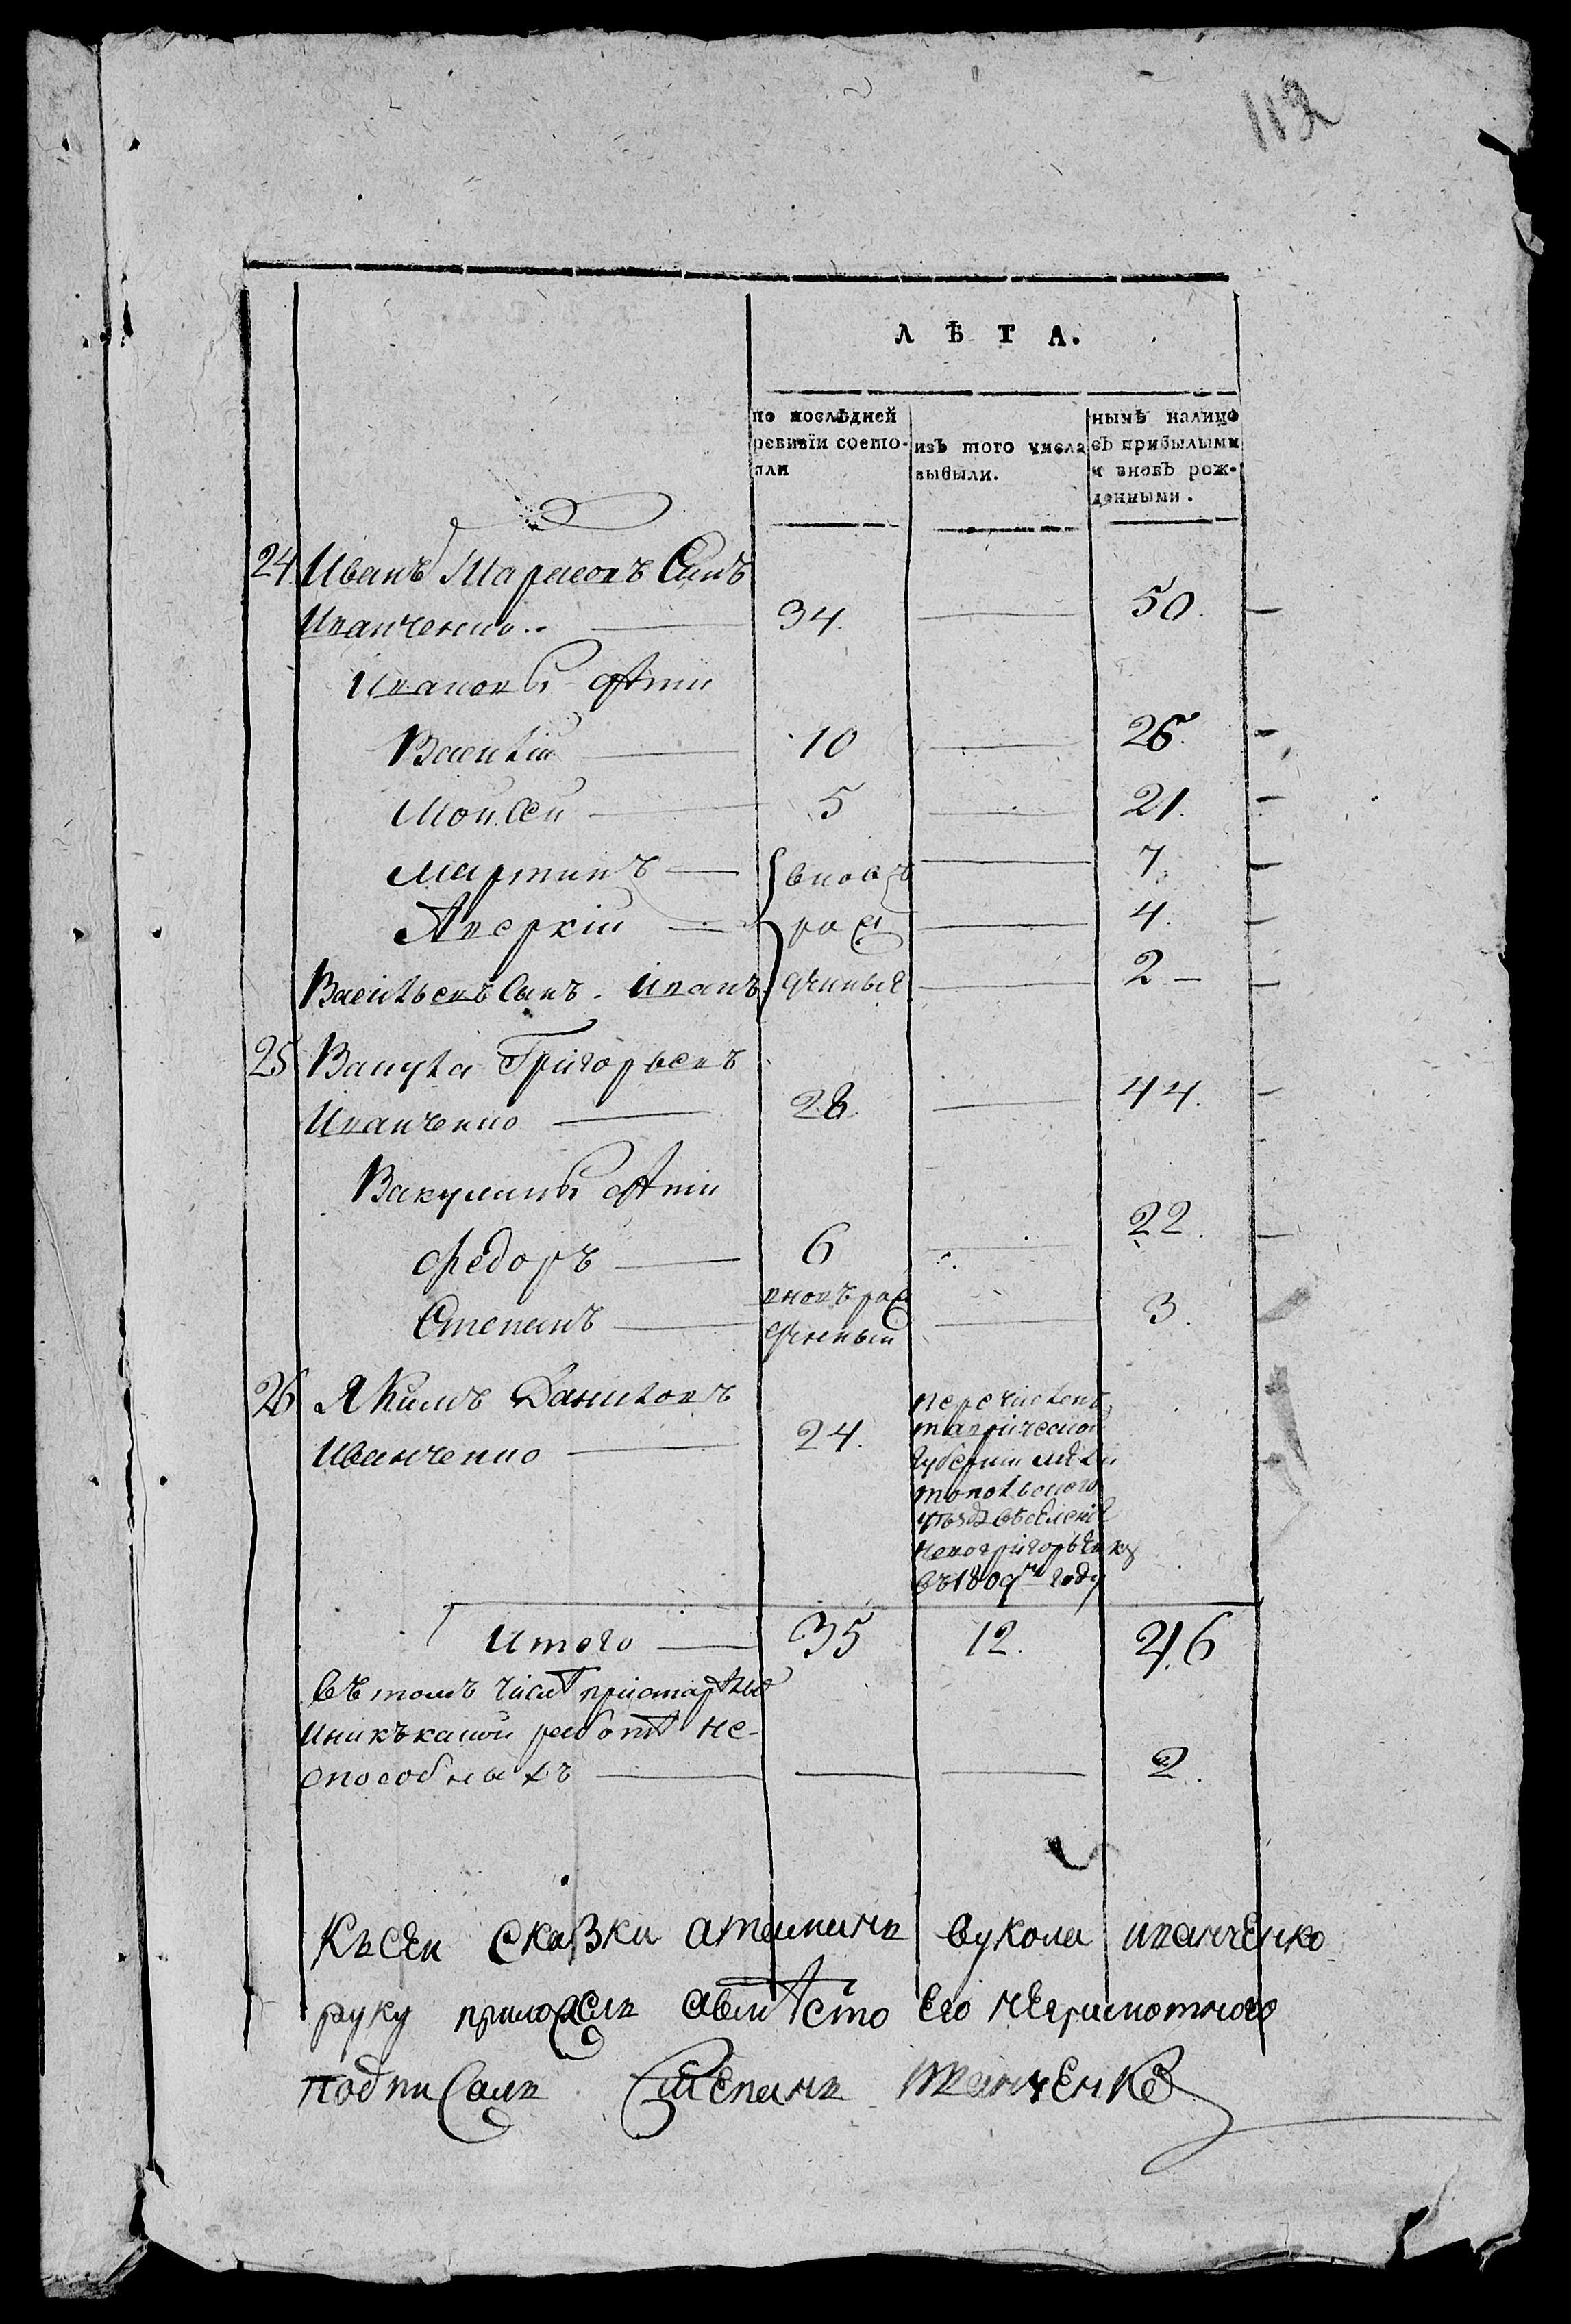 112
ЛѢТА.
по послѣдней ревизіи состояли
изъ того числа выбыли.
нынѣ налицо съ прибылыми и вновь рожденными.
24. Иванъ Тарасовъ Сынъ
Иванченко.. — 34. — 50. —
Ивановы дѣти
Василій — 10 — 26. —
Мойсей — 5 — 21. —
Мартинъ — вновь — 7. —
Аверкій — рож — 4. —
Васильевъ Сынъ. Иванъ денныя — 2 — —
25 Вакула Григорьевъ
Иванченко — 28. — 44. —
Вакулины дѣти
Федоръ — 6 — 22. —
Степанъ — вновь рож
денный — 3.
26 Якимъ Даниловъ
Иванченко — 24.
перечисленъ
таврической
губерніи мели
топольского
уѣзда въ селеніе
новогригорьевку
въ 1809м году
Итого — 35 12. 46
Въ томъ числѣ престарѣлыхъ
и никъ какой работѣ не-
способныхъ — — — 2.
Къ сеи сказки атаманъ Вукола иванченко
руку приложелъ авмѣсто Его неграмотного
подписалъ Степанъ иванченко